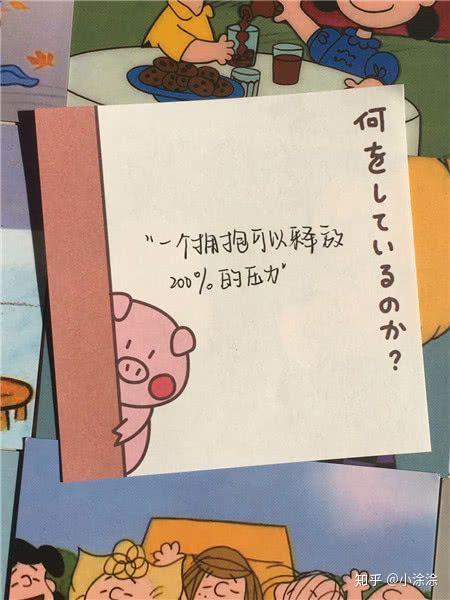 何をしているのか?
"一个拥抱可以释放
200%的压力"
知乎 @小涂涂